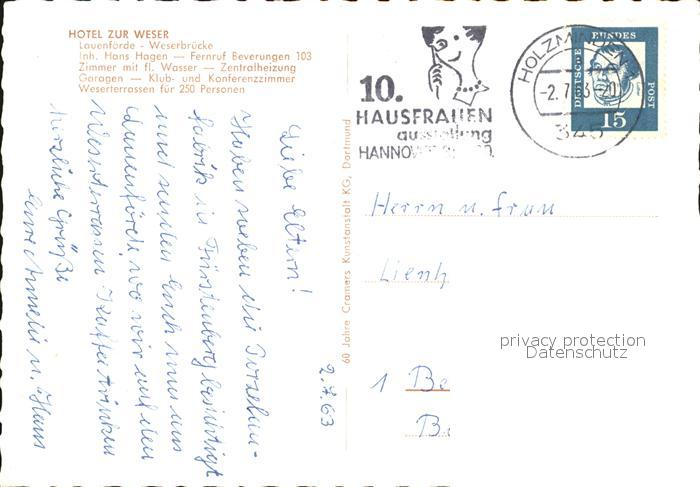 HOTEL ZUR WESER
Lauenförde - Weserbrücke
Inh. Hans Hagen — Fernruf Beverungen 103
Zimmer mit fl. Wasser — Zentralheizung
Garagen — Klub- und Konferenzzimmer
Weserterrassen für 250 Personen
10.
HAUSFRAUEN
ausstellung
HANNOVER
HOLZMINDEN
-2.7.63-20
345
DEUTSCHE BUNDESPOST
15
2.7.63
Liebe Eltern!
Haben soeben die Porzellan-
fabrik in Fürstenberg besichtigt
und senden Euch nun aus
Lauenförde, wo wir auf den
Weserterrassen Kaffee trinken
herzliche Grüße
Eure Amelie u. Hans
60 Jahre Cramers Kunstanstalt KG, Dortmund
Herrn u. Frau
Lienh
1 Be
B
privacy protection
Datenschutz